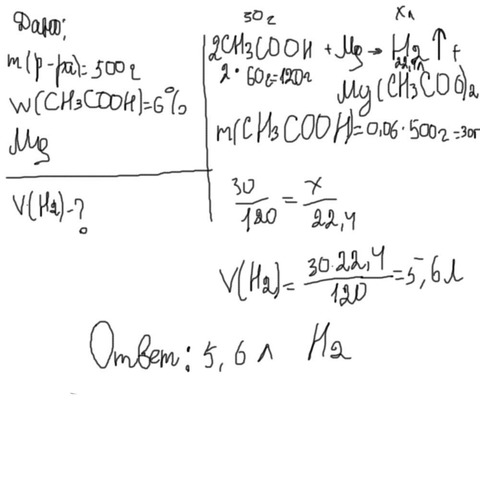 Дано:
m(р-ра)=500г
w(CH3COOH)=6%
Mg
V(H2)-?
30г хл
2CH3COOH + Mg → H2↑ +
2·60г=120г 22,4л
Mg(CH3COO)2
m(CH3COOH)=0,06·500г=30г
30/120 = x/22,4
V(H2)= 30·22,4/120 =5,6л
Ответ: 5,6л H2